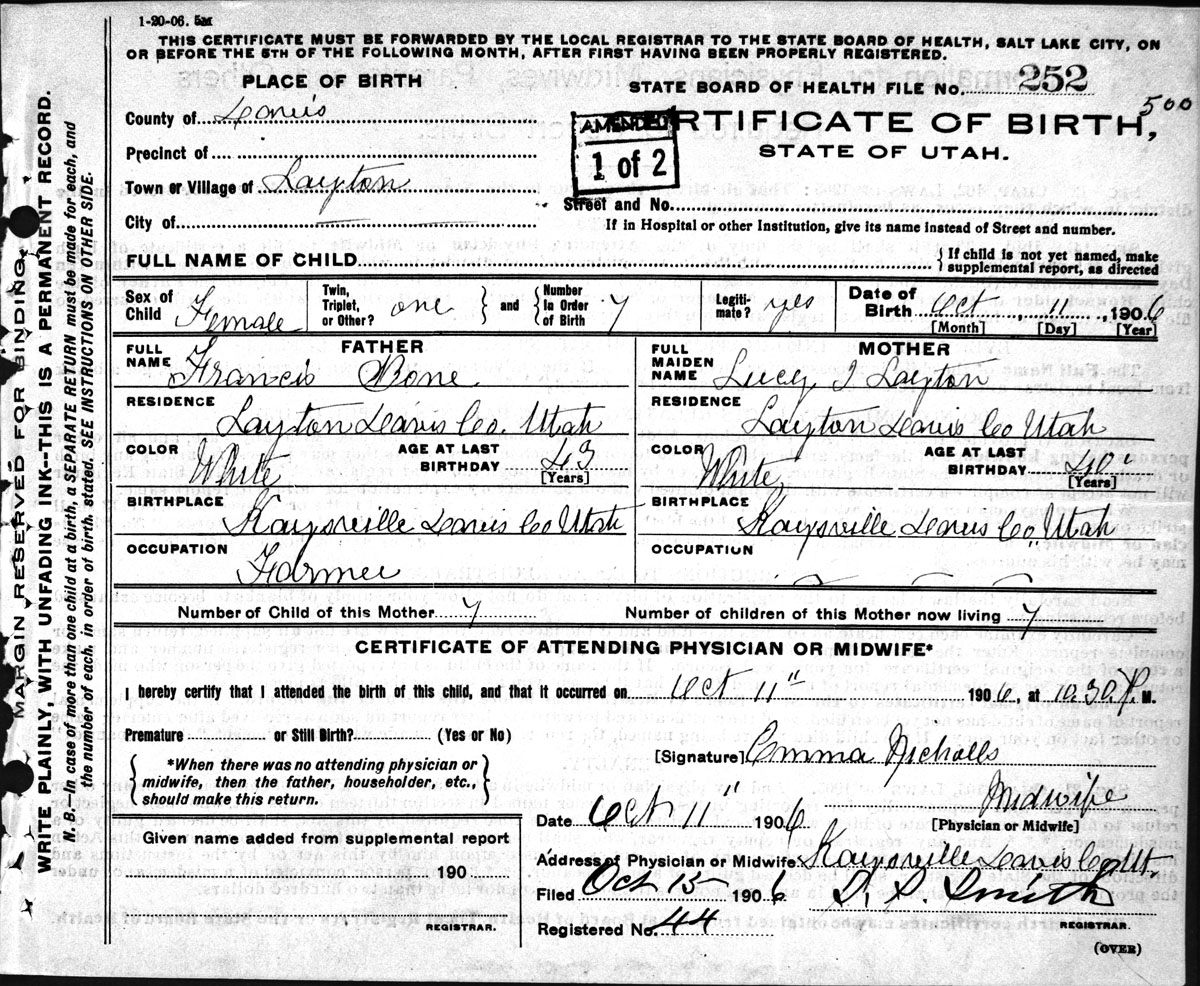 1-20-06. 5M
THIS CERTIFICATE MUST BE FORWARDED BY THE LOCAL REGISTRAR TO THE STATE BOARD OF HEALTH, SALT LAKE CITY, ON
OR BEFORE THE 5TH OF THE FOLLOWING MONTH, AFTER FIRST HAVING BEEN PROPERLY REGISTERED.
PLACE OF BIRTH
STATE BOARD OF HEALTH FILE No. 252
500
County of Davis
AMENDED
1 of 2
RTIFICATE OF BIRTH,
STATE OF UTAH.
Precinct of
Town or Village of Layton
Street and No.
City of
If in Hospital or other Institution, give its name instead of Street and number.
FULL NAME OF CHILD
{ If child is not yet named, make
supplemental report, as directed
Sex of Child Female
Twin, Triplet, or Other? one } and { Number In Order of Birth 7
Legiti-mate? yes
Date of Birth Oct 11, 1906
[Month] [Day] [Year]
FATHER
FULL NAME Francis Bone
MOTHER
FULL MAIDEN NAME Lucy I Layton
RESIDENCE Layton Davis Co. Utah
RESIDENCE Layton Davis Co Utah
COLOR White
AGE AT LAST BIRTHDAY 43
[Years]
COLOR White
AGE AT LAST BIRTHDAY 40
[Years]
BIRTHPLACE Kaysville Davis Co Utah
BIRTHPLACE Kaysville Davis Co, Utah
OCCUPATION Farmer
OCCUPATION
Number of Child of this Mother 7
Number of children of this Mother now living 7
CERTIFICATE OF ATTENDING PHYSICIAN OR MIDWIFE*
I hereby certify that I attended the birth of this child, and that it occurred on Oct 11" 1906, at 10.30 P. M.
Premature or Still Birth? (Yes or No)
[Signature] Emma Nicholls
{ *When there was no attending physician or
midwife, then the father, householder, etc.,
should make this return. }
Midwife
Date Oct 11" 1906
[Physician or Midwife]
Given name added from supplemental report
190
REGISTRAR.
Address of Physician or Midwife Kaysville Davis Co Ut
Filed Oct 15 1906
Smith
Registered No. 44
REGISTRAR.
(OVER)
MARGIN RESERVED FOR BINDING.
WRITE PLAINLY, WITH UNFADING INK--THIS IS A PERMANENT RECORD.
N. B. In case of more than one child at a birth, a SEPARATE RETURN must be made for each, and
the number of each, in order of birth, stated. SEE INSTRUCTIONS ON OTHER SIDE.